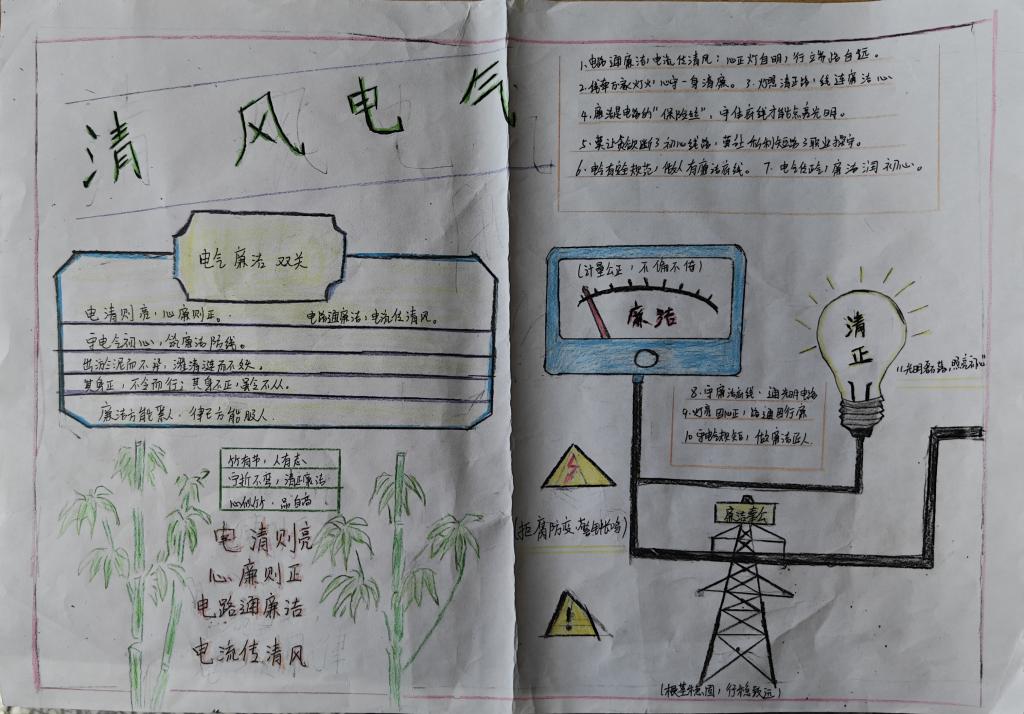 清风电气
1、电路通廉洁,电流传清风;心正灯自明,行立端路自远。
2.线牵万家灯火,心守一身清廉。 3.灯照清正路,线连廉洁心
4.廉洁是电路的"保险丝",守住底线才能点亮光明。
5.莫让贪欲断了初心线路,莫让私利短路了职业操守。
6.电气有安全规范,做人有廉洁底线。 7.电气在正气,廉洁润初心。
电气廉洁双关
电清则亮,心廉则正。 电路通廉洁,电流传清风。
守电气初心,筑廉洁防线。
出淤泥而不染,濯清涟而不妖。
其身正,不令而行;其身不正,虽令不从。
廉洁方能聚人.律己方能服人.
(计量公正,不偏不倚)
廉洁
清正
"光明磊落,照亮初心"
8.守廉洁底线、通光明电路
9.灯亮因心正,路通因行廉
10.守电气规矩,做廉洁匠人.
竹有节,人有志、
宁折不弯,清正廉洁
心似竹、品自高、
电清则亮
心廉则正
电路通廉洁
电流传清风
(拒腐防变,警钟长鸣)
廉洁奉公
(根基稳固,行稳致远)